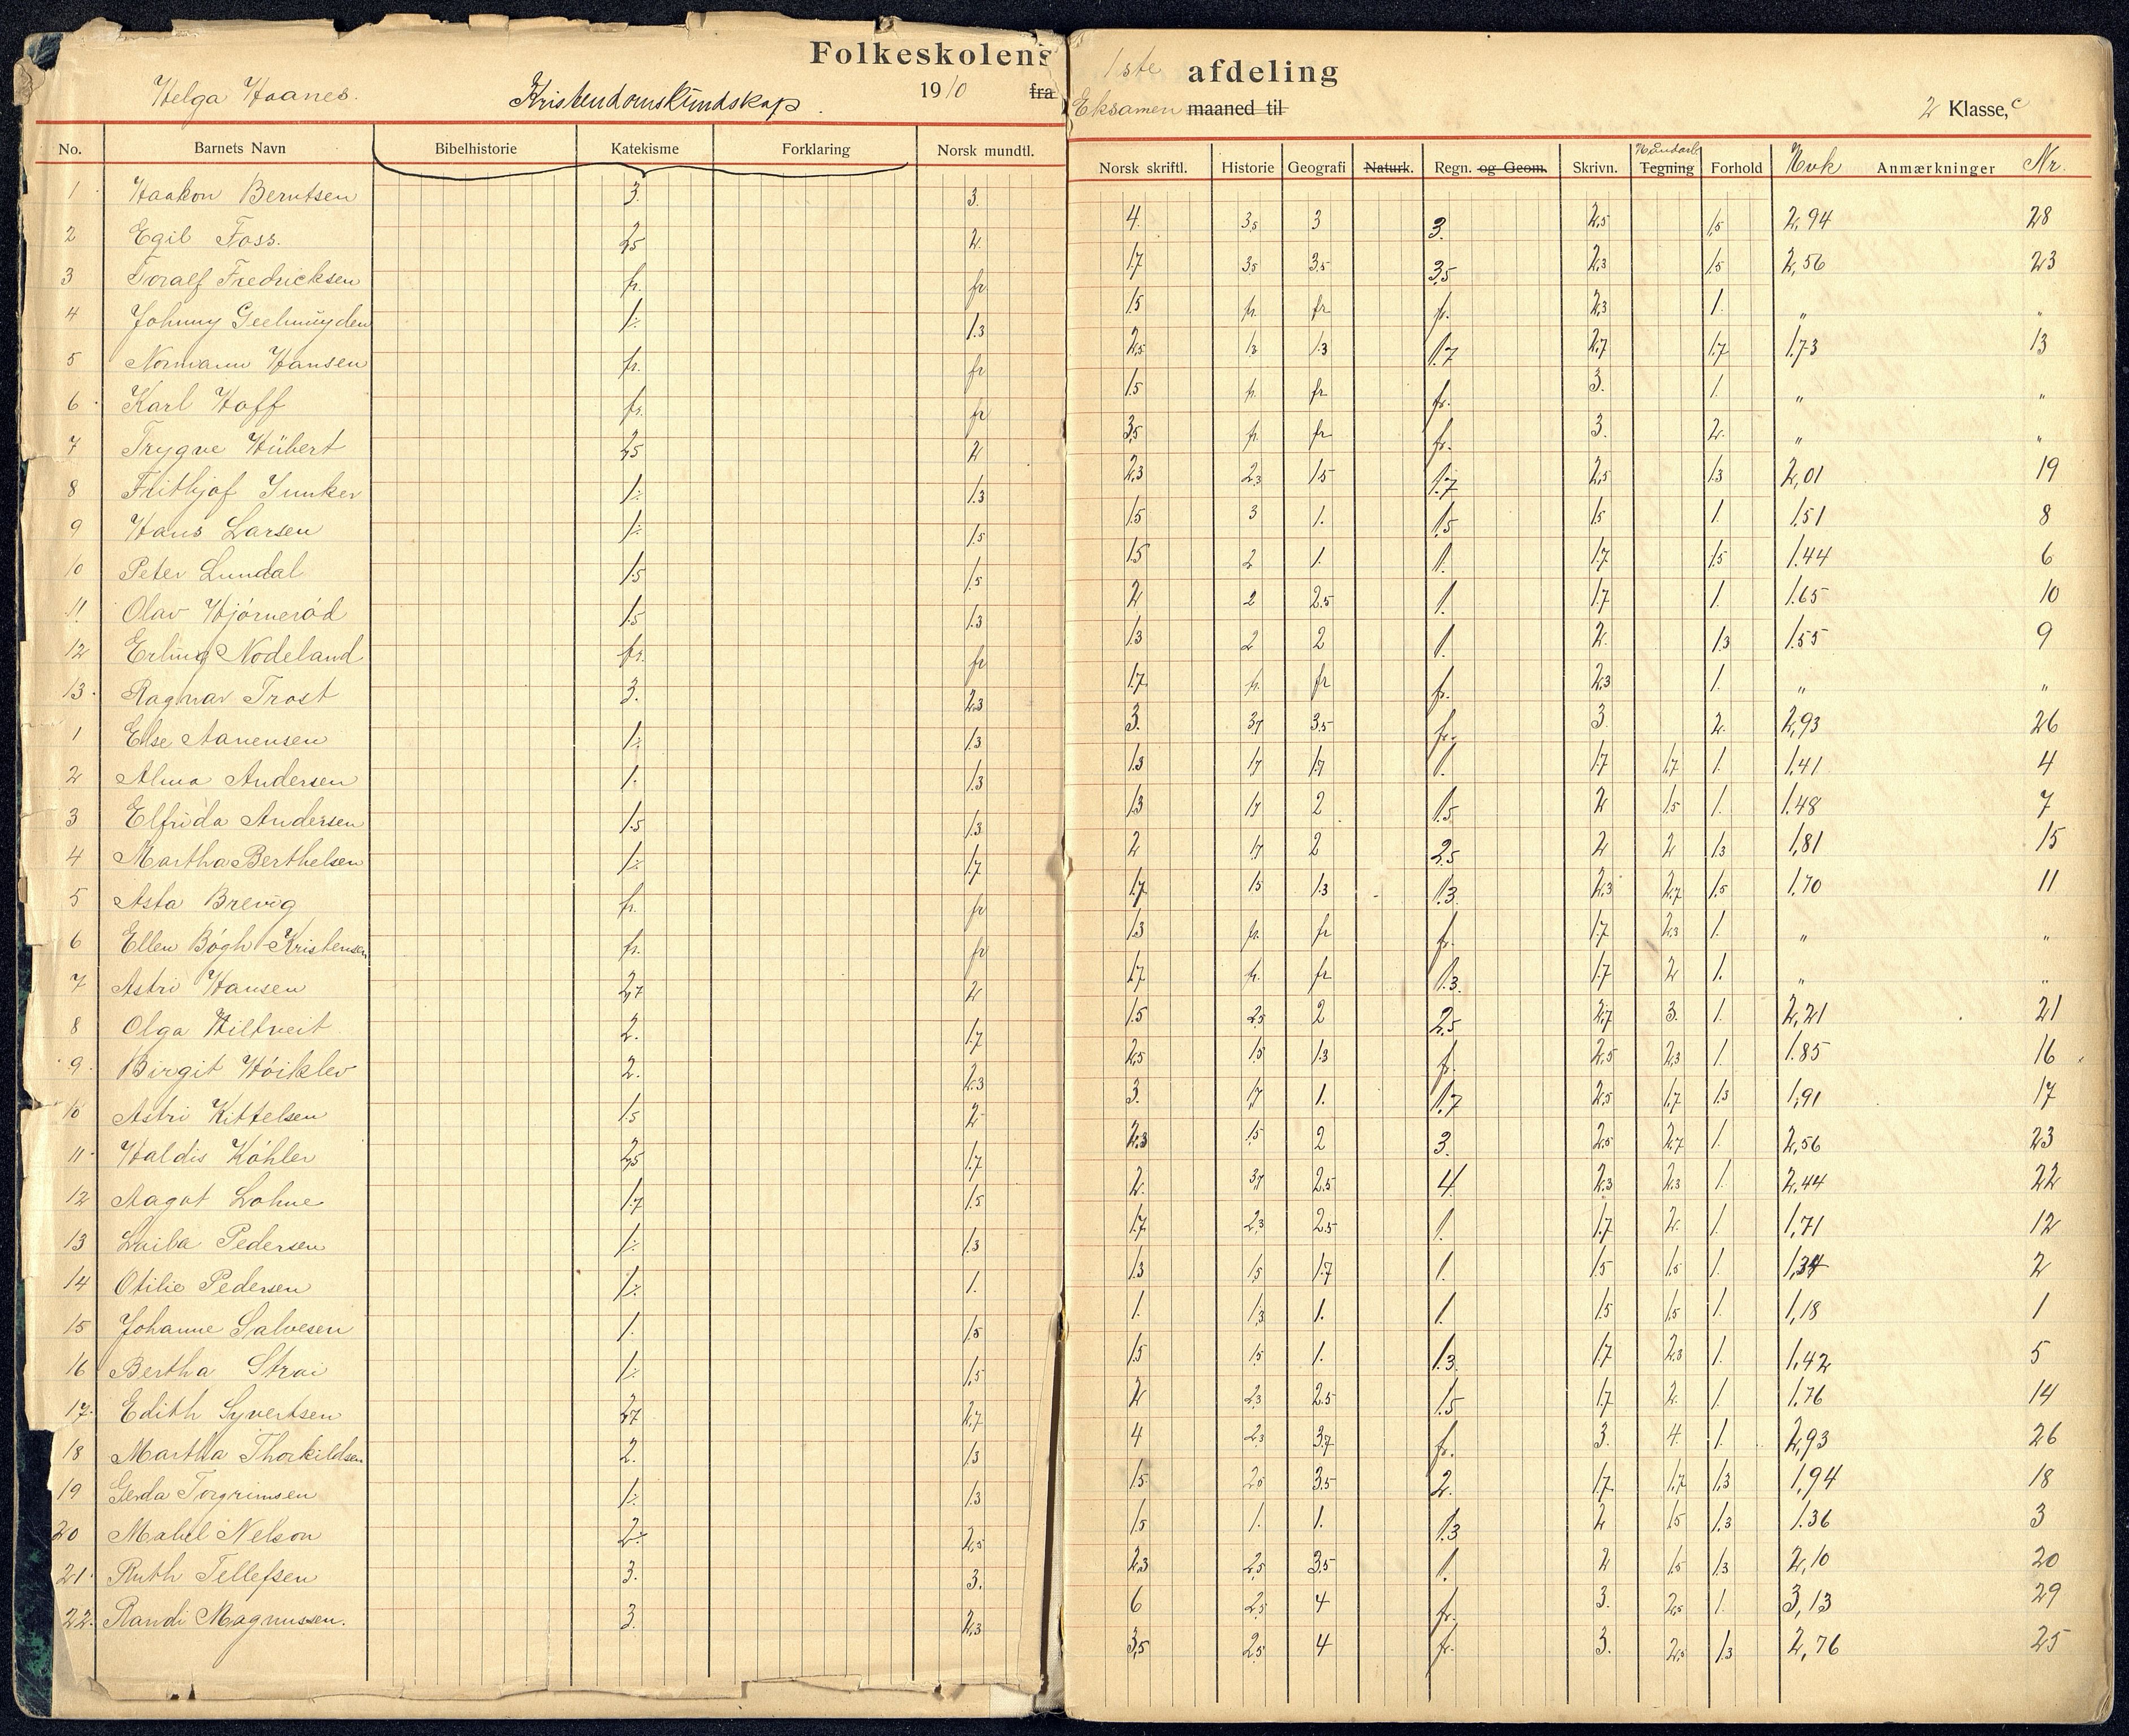 Folkeskolens 1ste afdeling
Helga Haanes. Kristendomskundskap. 1910 fra Eksamen maaned til 2 Klasse, c
No. Barnets Navn Bibelhistorie Katekisme Forklaring Norsk mundtl. Norsk skriftl. Historie Geografi Naturk. Regn. og Geom. Skrivn. Håndarb. Tegning Forhold Hvk Anmærkninger Nr.
1 Haakon Berntsen 3. 3. 4. 3,5 3 3. 2,5 1,5 2,94 28
2 Egil Foss. 2,5 2. 1,7 3,5 3,5 3,5 2,3 1,5 2,56 23
3 Toralf Fredricksen fr. fr 1,5 fr. fr fr. 2,3 1. " "
4 Johnny Geelmuyden 1÷ 1.3 2,5 1,3 1.3 1.7 2,7 1,7 1,73 13
5 Normann Hansen fr. fr 1.5 fr. fr fr. 3. 1. " "
6 Karl Hoff fr. fr 3,5 fr. fr fr. 3. 2. " "
7 Trygve Hübert 2,5 2 2,3 2,3 1.5 1.7 2,5 1.3 2,01 19
8 Frithjof Junker 1÷ 1.3 1.5 3 1. 1.5 1.5 1. 1.51 8
9 Hans Larsen 1÷ 1.5 1.5 2 1. 1. 1.7 1.5 1.44 6
10 Peter Lundal 1.5 1.5 2 2 2.5 1. 1.7 1. 1.65 10
11. Olav Hjørnerød 1.5 1.3 1.3 2 2 1. 2. 1.3 1.55 9
12 Erling Nodeland fr. fr 1.7 fr. fr fr. 2,3 1. " "
13. Ragnar Trost 3. 2,3 3. 3,7 3.5 fr. 3. 2. 2,93 26
1 Else Aanensen 1÷ 1.3 1.3 1,7 1.7 1. 1.7 1,7 1. 1,41 4
2 Alma Andersen 1. 1.3 1.3 1,7 2 1.5 2 1.5 1. 1.48 7
3 Elfrida Andersen 1.5 1.3 2 1,7 2 2,5 2 2 1.3 1,81 15
4 Martha Berthelsen 1÷ 1.7 1.7 1.5 1.3 1.3. 2,3 2,7 1.5 1.70 11
5 Asta Brevig fr. fr 1.3 fr. fr fr. 1.7 2,3 1. " "
6 Ellen Bögh-Kristensen fr. fr 1.7 fr. fr 1.3. 1.7 2 1. " "
7 Astri Hansen 2,7 2 1.5 2,5 2 2,5 2,7 3. 1. 2,21 21
8 Olga Hiltveit 2. 1.7 2,5 1.5 1.3 fr. 2,5 2,3 1. 1.85 16
9. Birgit Höiklev 2. 2.3 3. 1,7 1. 1.7 2,5 1,7 1.3 1,91 17
10 Astri Kittelsen 1.5 2- 2,3 1.5 2 3. 2,5 2,7 1. 2,56 23
11. Haldis Köhler 2,5 1.7 2. 3,7 2.5 4. 2,3 2,3 1. 2,44 22
12 Aagot Lohne 1.7 1.5 1.7 2,3 2.5 1. 1.7 2. 1. 1,71 12
13 Laila Pedersen 1÷ 1.3 1.3 1,5 1.7 1. 1.5 1,5 1. 1,34 2
14 Otilie Pedersen 1÷ 1. 1. 1,3 1. 1. 1.5 1.5 1. 1,18 1
15 Johanne Salvesen 1. 1.5 1.5 1.5 1. 1.3. 1.7 2,3 1. 1,42 5
16 Bertha Strai 1÷ 1,5 2 2,3 2.5 1.5 1.7 2. 1. 1.76 14
17. Edith Syvertsen 2,7 2,7 4 2,3 3.7 fr. 3. 4. 1. 2,93 26
18 Martha Thorkildsen 2. 1.3 1.5 2,5 3.5 2. 1.7 1,7 1,3 1,94 18
19 Gerda Torgrimsen 1÷ 1.3 1.5 1. 1. 1.3 2 1.5 1.3 1.36 3
20 Mabel Nelson 2÷ 2,5 2,3 2,5 3.5 1. 2 1.5 1.3 2,10 20
21. Ruth Tellefsen 3. 3. 6 2,5 4 fr. 3. 2,5 1. 3,13 29
22. Randi Magnussen. 3. 2,3 3,5 2.5 4 fr. 3. 2,5 1.3 2,76 25